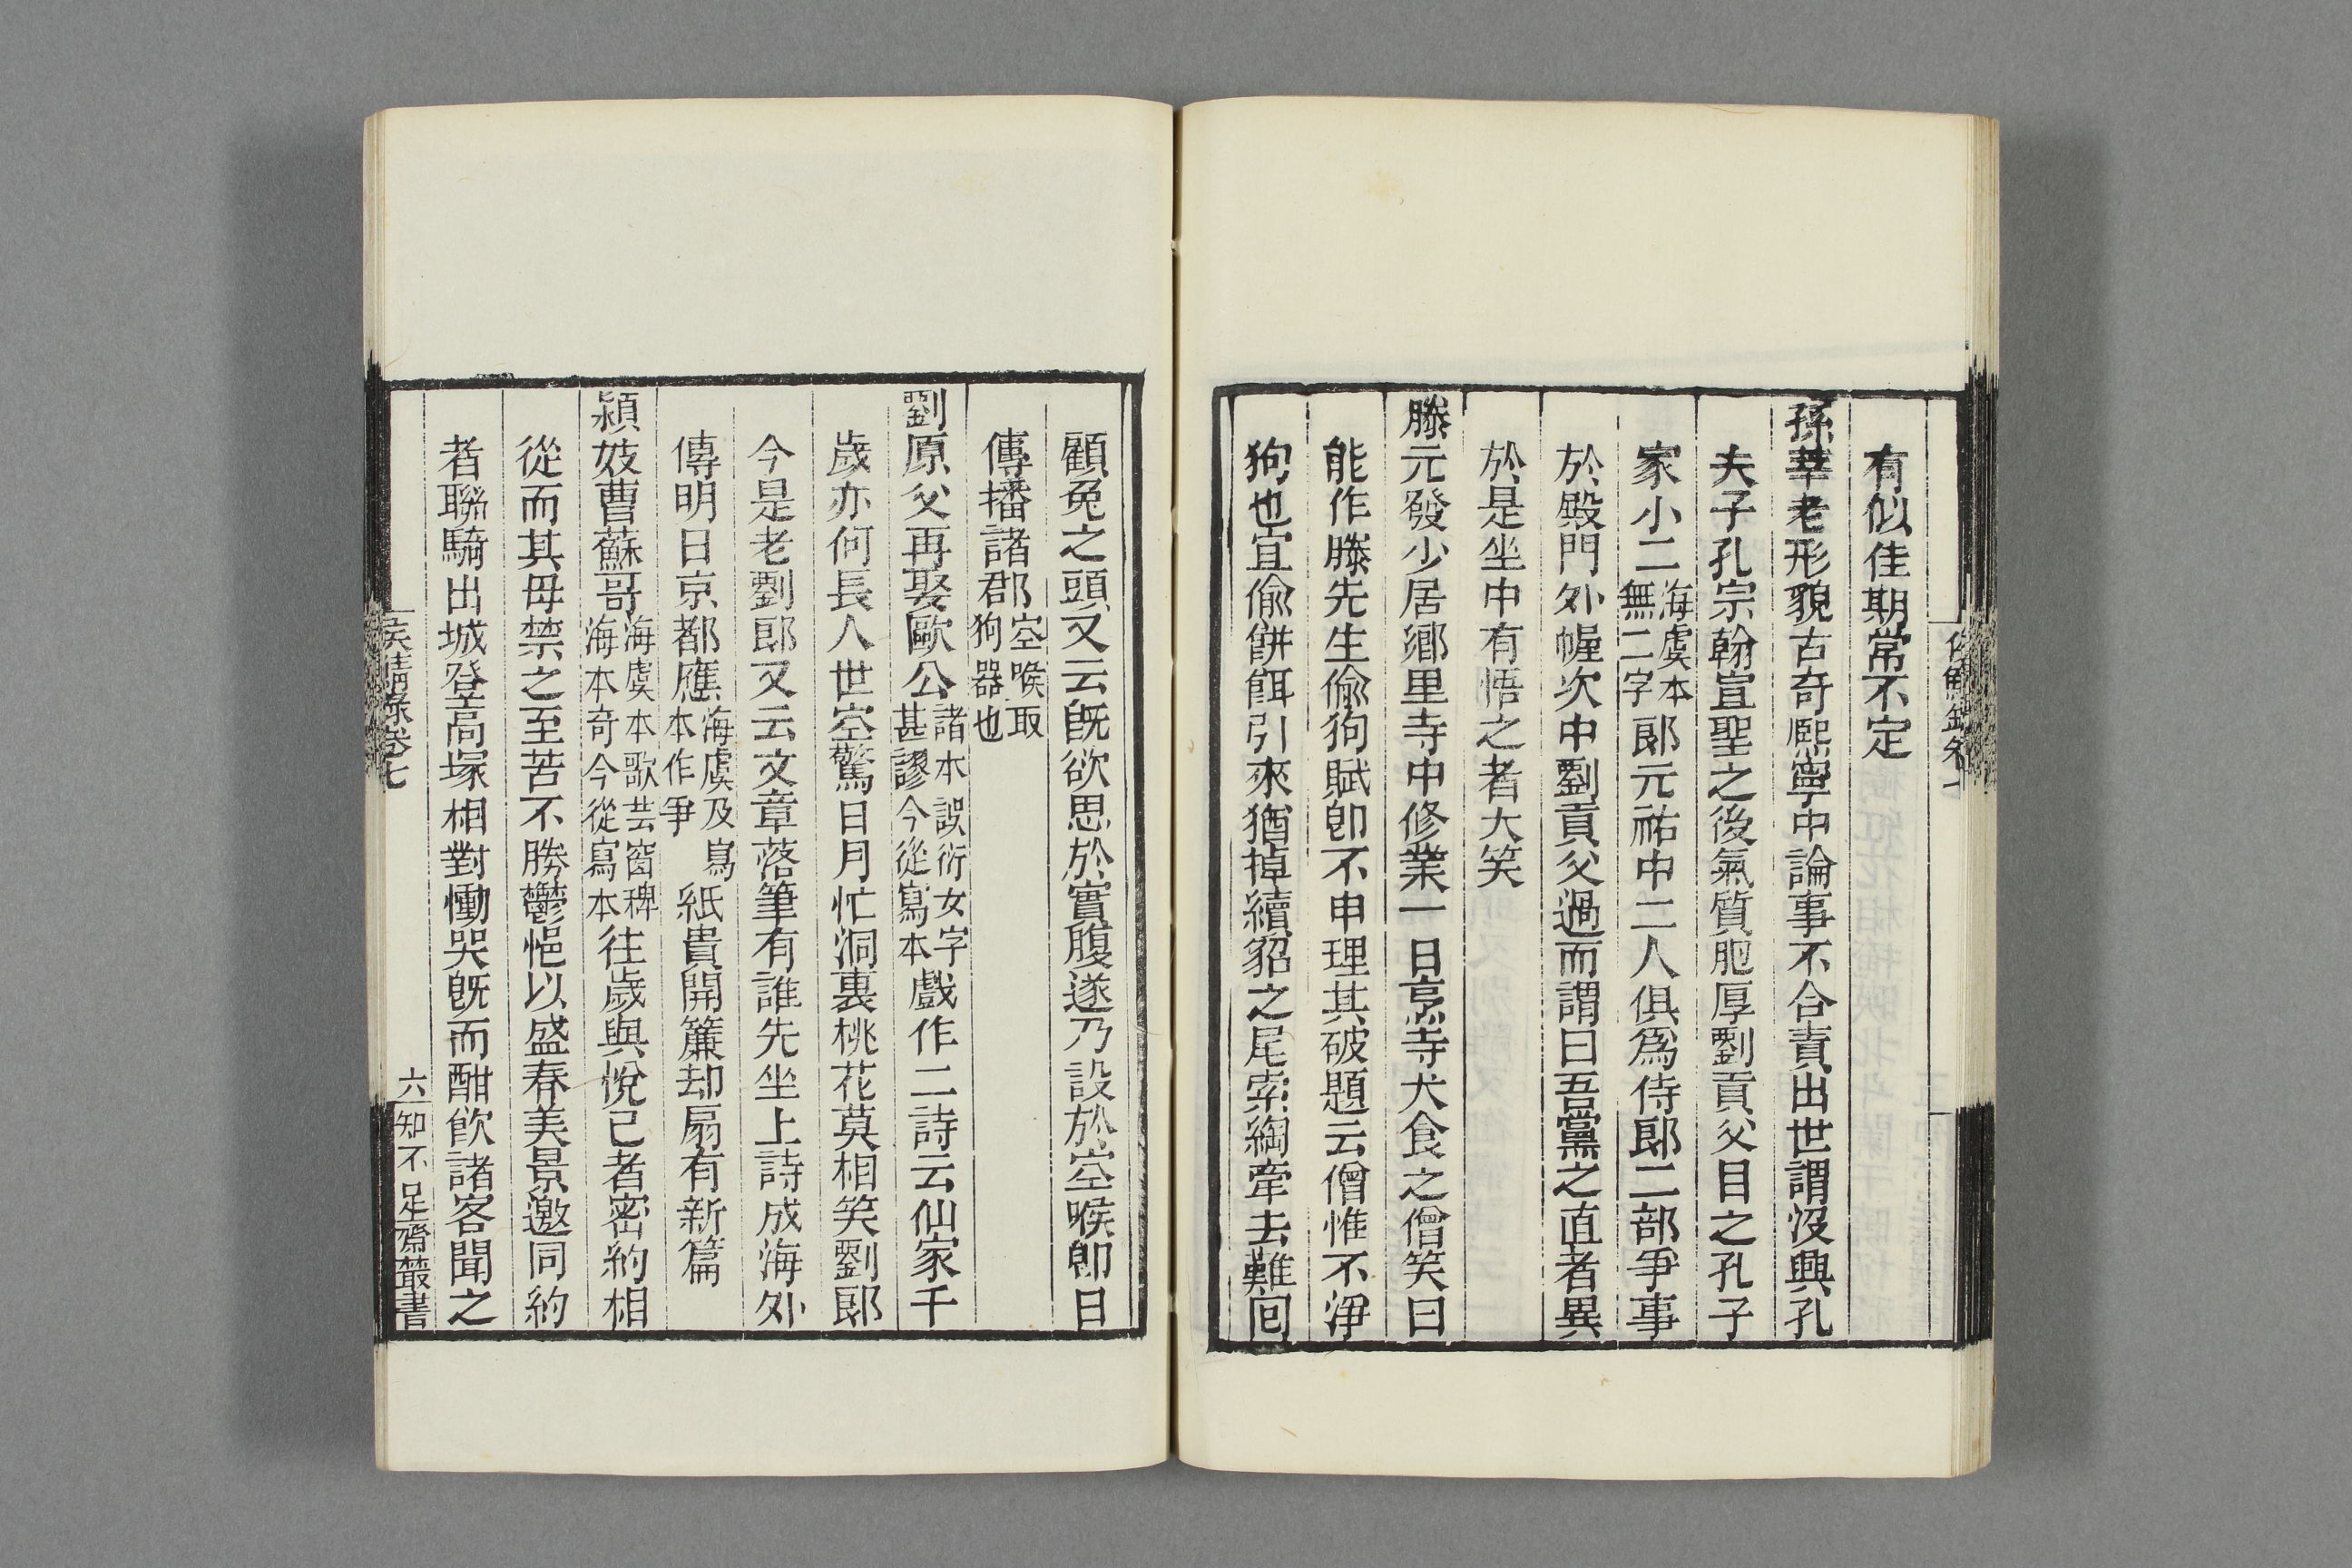 有似佳期常不定
孫莘老形貌古奇熙寧中論事不合責出世謂沒興孔
夫子孔宗翰宣聖之後氣質肥厚劉貢父目之孔子
家小二海虞本無二字郎元祐中二人俱爲侍郎二部爭事
於殿門外幄次中劉貢父過而謂曰吾黨之直者異
於是坐中有悟之者大笑
滕元發少居鄉里寺中修業一日烹寺犬食之僧笑曰
能作滕先生偸狗賦卽不申理其破題云僧惟不淨
狗也宜偸餅餌引來猶掉續貂之尾索綯牽去難回
顧兔之頭又云旣欲思於實腹遂乃設於空喉卽日
傳播諸郡空喉取狗器也
劉原父再娶歐公諸本誤衍女字甚謬今從寫本戲作二詩云仙家千
歲亦何長人世空驚日月忙洞裏桃花莫相笑劉郎
今是老劉郎又云文章落筆有誰先坐上詩成海外
傳明日京都應海虞及寫本作爭紙貴開簾却扇有新篇
潁妓曹蘇哥海虞本歌芸窗稗海本奇今從寫本往歲與悅己者密約相
從而其母禁之至苦不勝鬱悒以盛春美景邀同約
者聯騎出城登高塚相對慟哭旣而酣飮諸客聞之
侯鯖錄卷七
六
知不足齋叢書